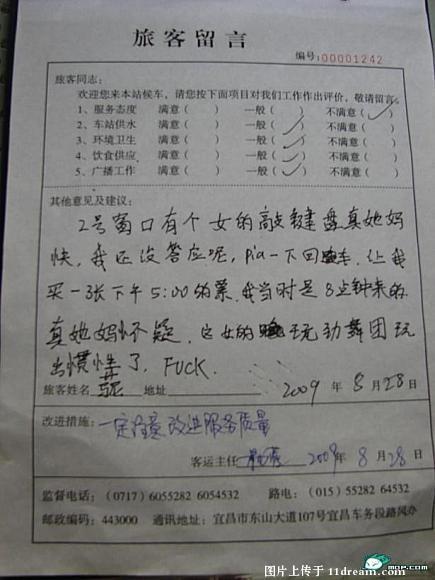 旅客留言
编号:00001242
旅客同志:
欢迎您来本站候车,请您按下面项目对我们工作作出评价,敬请留言。
1、服务态度 满意( ) 一般( ) 不满意(✓)
2、车站供水 满意( ) 一般(✓) 不满意( )
3、环境卫生 满意( ) 一般(✓) 不满意( )
4、饮食供应 满意( ) 一般(✓) 不满意( )
5、广播工作 满意( ) 一般(✓) 不满意( )
其他意见及建议:
2号窗口有个女的敲键盘真她妈
快,我还没答应呢,pia一下回车,让我
买一张下午5:00的票,我当时是8点钟来的
真她妈怀疑,这女的玩劲舞团玩
出惯性了,FUCK.
旅客姓名 地址 2009 年 8 月 28 日
改进措施: 一定注意改进服务质量
客运主任 2009 年 8 月 28 日
监督电话:(0717)6055282 6054532 路电:(015)55282 64532
邮政编码:443000 通讯地址:宜昌市东山大道107号宜昌车务段路风办
图片上传于 11dream.com
mop.com